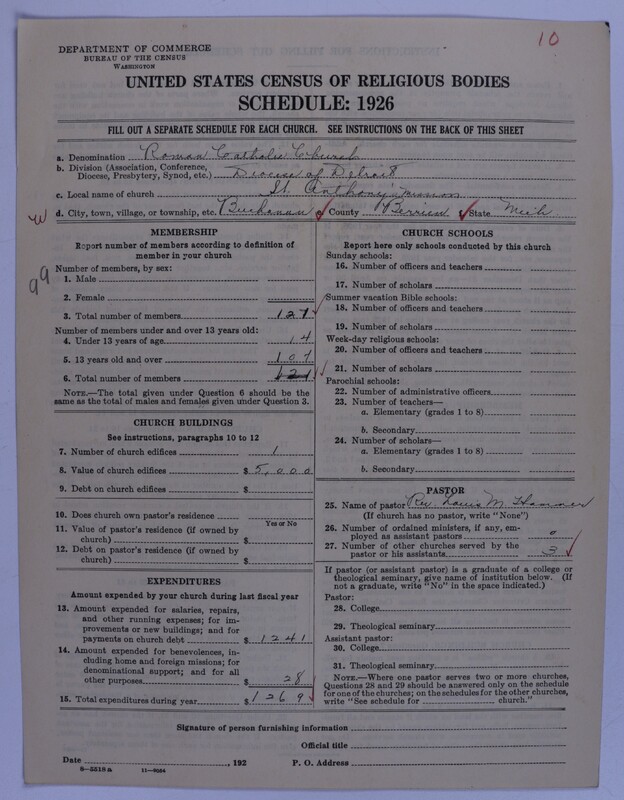 10
DEPARTMENT OF COMMERCE
BUREAU OF THE CENSUS
WASHINGTON
UNITED STATES CENSUS OF RELIGIOUS BODIES
SCHEDULE: 1926
FILL OUT A SEPARATE SCHEDULE FOR EACH CHURCH. SEE INSTRUCTIONS ON THE BACK OF THIS SHEET
a. Denomination Roman Catholic Church
b. Division (Association, Conference,
Diocese, Presbytery, Synod, etc.) Diocese of Detroit
c. Local name of church St. Anthony's mission
d. City, town, village, or township, etc. Buchanan County Berrien State Mich
99
MEMBERSHIP
Report number of members according to definition of
member in your church
Number of members, by sex:
1. Male
2. Female
3. Total number of members 121
Number of members under and over 13 years old:
4. Under 13 years of age 14
5. 13 years old and over 107
6. Total number of members 121
NOTE.—The total given under Question 6 should be
same as the total of males and females given under Question 3.
CHURCH BUILDINGS
See instructions, paragraphs 10 to 12
7. Number of church edifices 1
8. Value of church edifices $ 5,000
9. Debt on church edifices $
10. Does church own pastor's residence
Yes or No
11. Value of pastor's residence (if owned by
church) $
12. Debt on pastor's residence (if owned by
church) $
EXPENDITURES
Amount expended by your church during last fiscal year
13. Amount expended for salaries, repairs,
and other running expenses; for im-
provements or new buildings; and for
payments on church debt $ 1241
14. Amount expended for benevolences, in-
cluding home and foreign missions; for
denominational support; and for all
other purposes $ 28
15. Total expenditures during year $ 1269
CHURCH SCHOOLS
Report here only schools conducted by this church
Sunday schools:
16. Number of officers and teachers
17. Number of scholars
Summer vacation Bible schools:
18. Number of officers and teachers
19. Number of scholars
Week-day religious schools:
20. Number of officers and teachers
21. Number of scholars
Parochial schools:
22. Number of administrative officers
23. Number of teachers—
a. Elementary (grades 1 to 8)
b. Secondary
24. Number of scholars—
a. Elementary (grades 1 to 8)
b. Secondary
PASTOR
25. Name of pastor Rev. Louis M. Hammer
(If church has no pastor, write "None")
26. Number of ordained ministers, if any, em-
ployed as assistant pastors 0
27. Number of other churches served by the
pastor or his assistants 3
If pastor (or assistant pastor) is a graduate of a college or
theological seminary, give name of institution below. (If
not a graduate, write "No" in the space indicated.)
Pastor:
28. College
29. Theological seminary
Assistant pastor:
30. College
31. Theological seminary
NOTE.—Where one pastor serves two or more churches,
Questions 28 and 29 should be answered only on the schedule
for one of the churches; on the schedules for the other churches,
write "See schedule for church."
Signature of person furnishing information
Official title
Date , 192 P. O. Address
8—5518a 11—9064